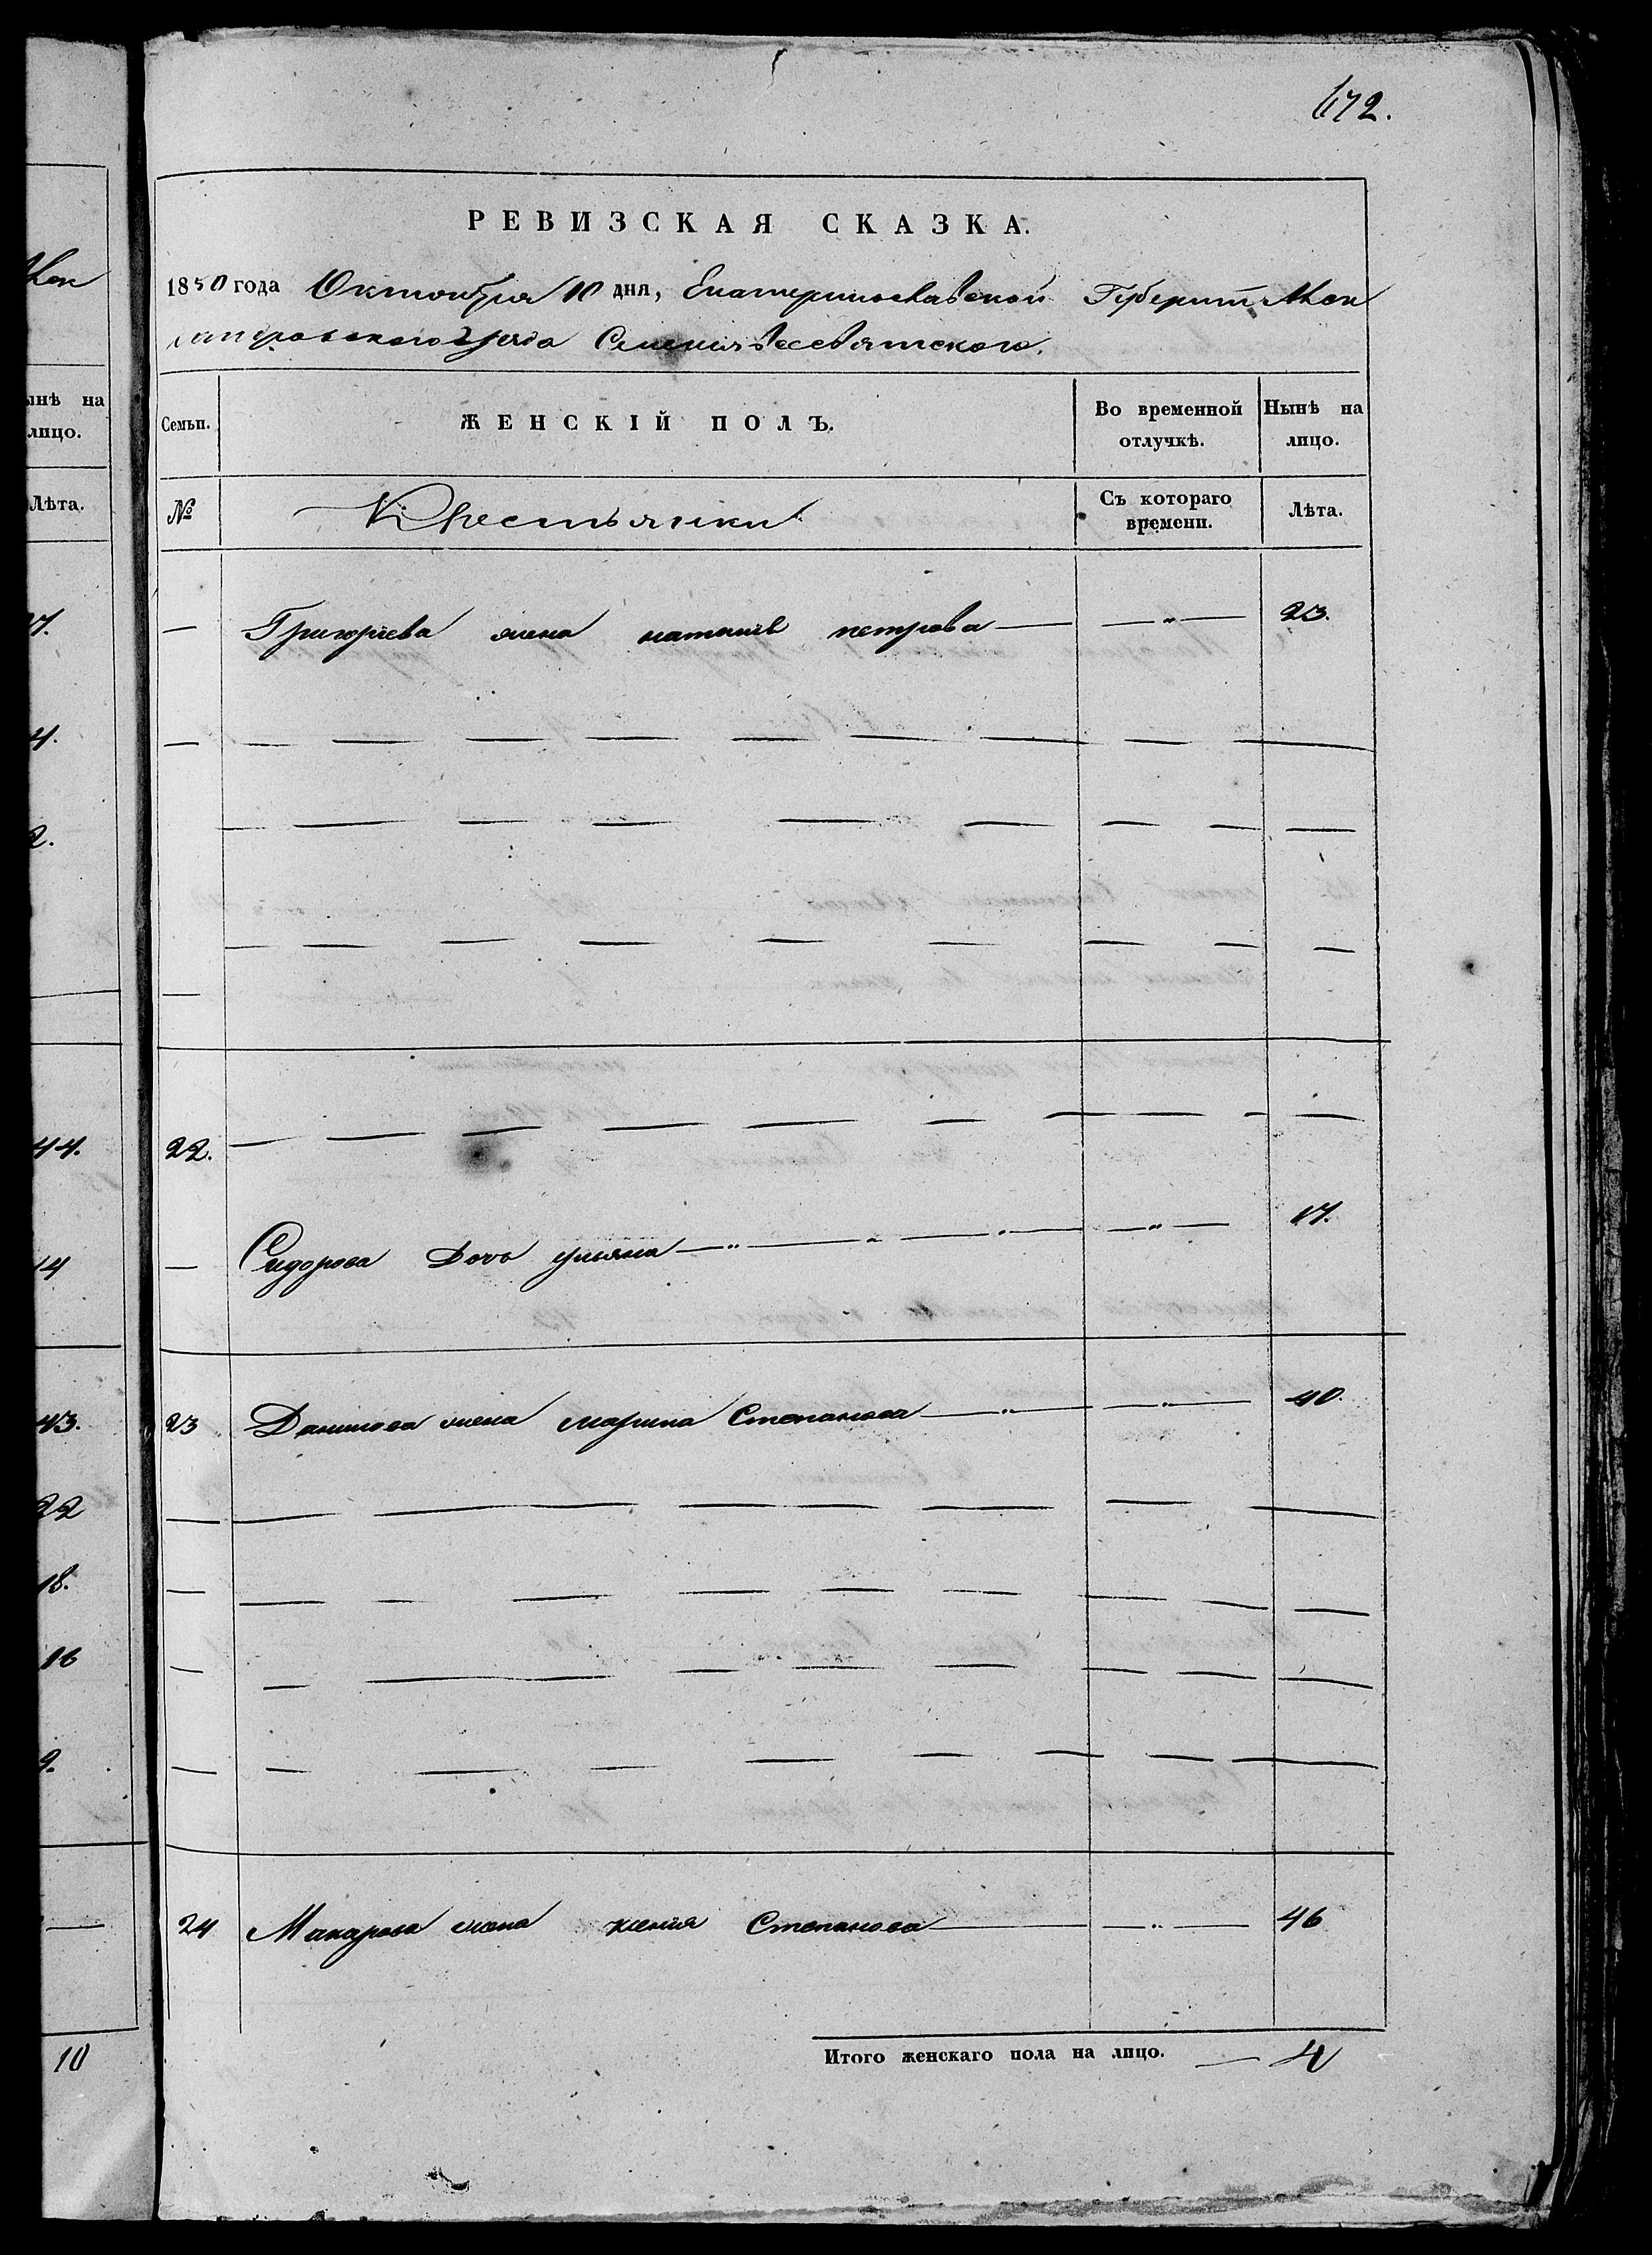 672.
РЕВИЗСКАЯ СКАЗКА.
1850 года Октября 10 дня, Екатеринославской Губернiи Алек
сандровского Уезда Селенiя Всесвятского.
Семьи. ЖЕНСКIЙ ПОЛЪ. Во временной отлучкѣ. Нынѣ на лицо.
№ Крестьянки Съ котораго времени. Лѣта.
— Григорiева жена наталiя петрова — — " — 23.
22.
— Сидорова Дочь ульяна — " — — " — 17.
23 Данилова жена марина Степанова — " — — " — 40.
24 Макарова жена ксенiя Степанова — — " — 46
Итого женскаго пола на лицо. — 4
Алек
ынѣ на
лицо.
Лѣта.
7.
4.
2.
44.
14
43.
22
18.
16
9.
10